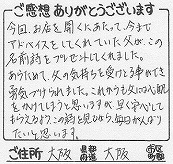 ご感想 ありがとうございます
今回、お店を開くにあたって、今まで
アドバイスをしてくれていた父が、この
名前詩をプレゼントしてくれました。
あらためて、父の気持ちを受けとめて
勇気づけられました。これからも父には心配
をかけてしまうと思いますが、早く安心して
もらえるよう、この詩を見ながら、毎日がんばり
たいと思います。
ご住所 大阪 都道府県 大阪 市区町村